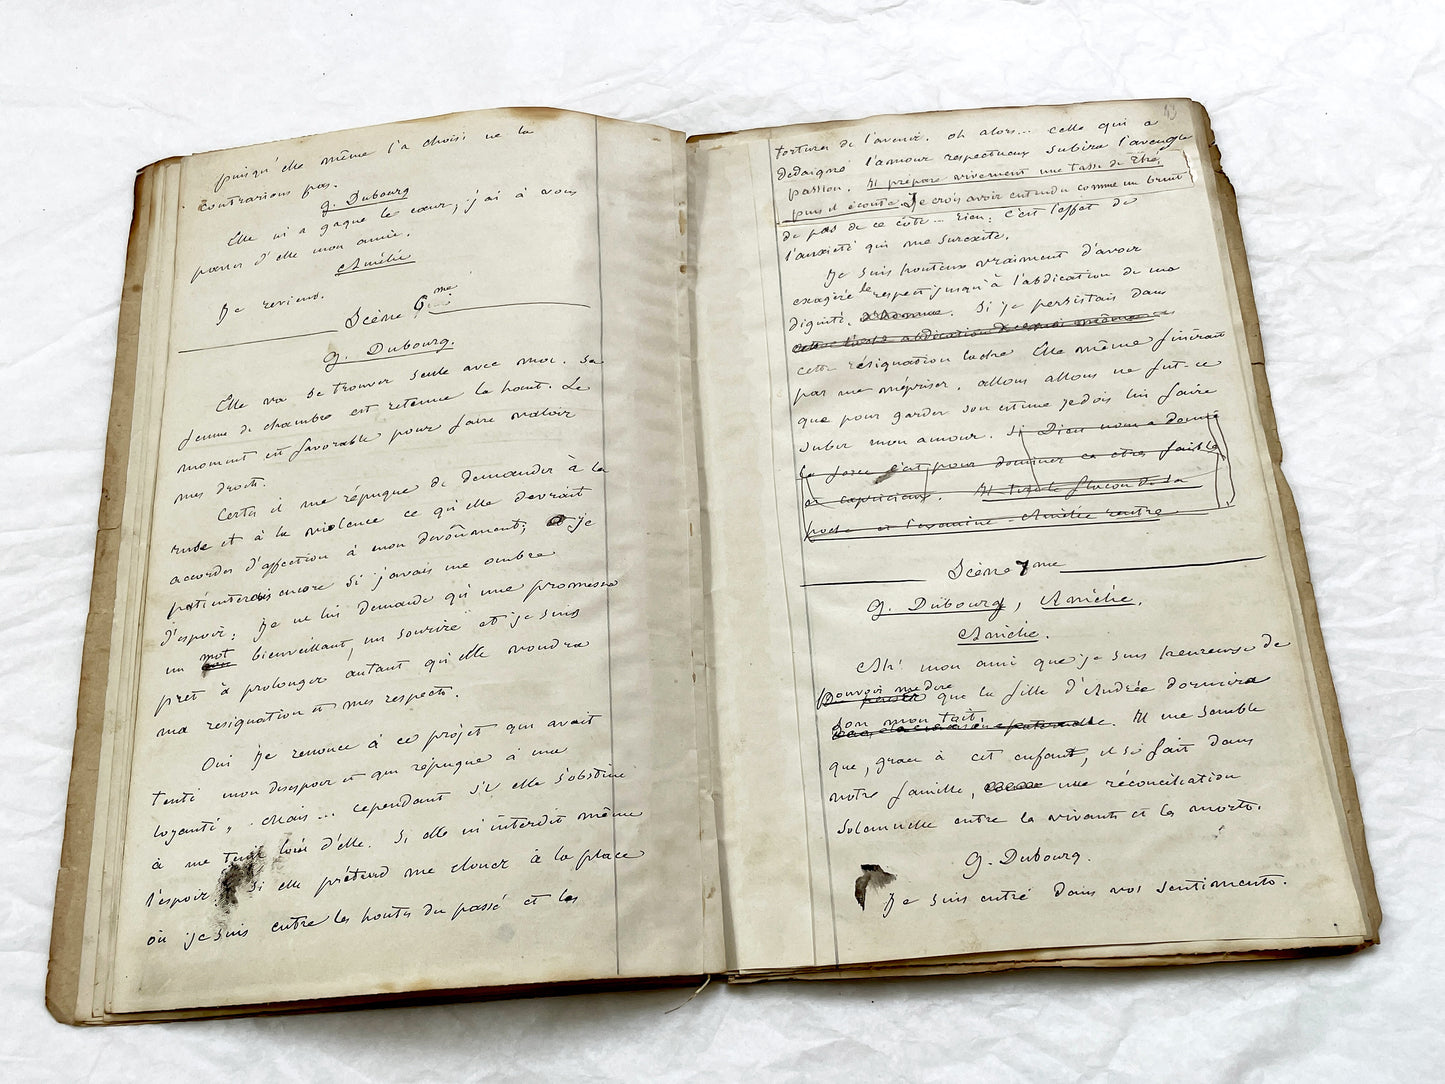 puisqu'elle même l'a choisi ne la
contrarions pas.
G. Dubourg
Elle m'a gagné le cœur, j'ai à vous
parler d'elle mon amie.
Amélie
Je reviens.
Scène 6me
G. Dubourg.
Elle va se trouver seule avec moi. Sa
femme de chambre est retenue là haut. Le
moment est favorable pour faire valoir
mes droits.
Certes il me répugne de demander à la
ruse et à la violence ce qu'elle devrait
accorder d'affection à mon dévoûment; je
patienterais encore si j'avais une ombre
d'espoir: je ne lui demande qu'une promesse
un mot bienveillant, un sourire et je suis
prêt à prolonger autant qu'elle voudra
ma résignation et mes respects.
Oui je renonce à ce projet qui avait
tenté mon désespoir et qui répugne à ma
loyauté, Mais... cependant s'il elle s'obstine
à me tenir loin d'elle. Si elle m'interdit même
l'espoir. Si elle prétend me clouer à la place
où je suis entre les hontes du passé et les
13
tortures de l'avenir. oh alors... celle qui a
dédaigné l'amour respectueux subira l'aveugle
passion. Il prépare vivement une tasse de thé,
puis il écoute. Je crois avoir entendu comme un bruit
de pas de ce côté... rien: c'est l'effet de
l'anxiété qui me surexcite.
Je suis honteux vraiment d'avoir
exagéré le respect jusqu'à l'abdication de ma
dignité. d'homme. Si je persistais dans
cette lâche abdication de moi même
cette résignation lâche Elle même finirait
par me mépriser. allons allons ne fut-ce
que pour garder son estime je dois lui faire
subir mon amour. Si Dieu nous a donné
la force c'est pour dominer ces êtres faibles
et capricieux. Il tire le flacon de sa
poche et l'examine - Amélie rentre
Scène 7me
G. Dubourg, Amélie.
Amélie.
Ah! mon ami que je suis heureuse de
pouvoir me dire
penser que la fille d'Andrée dormira
son mon toit.
dans la maison paternelle. Il me semble
que, grace à cet enfant, il se fait dans
notre famille, une réconciliation
solennelle entre les vivants et les morts.
G. Dubourg.
Je suis entré dans vos sentiments.